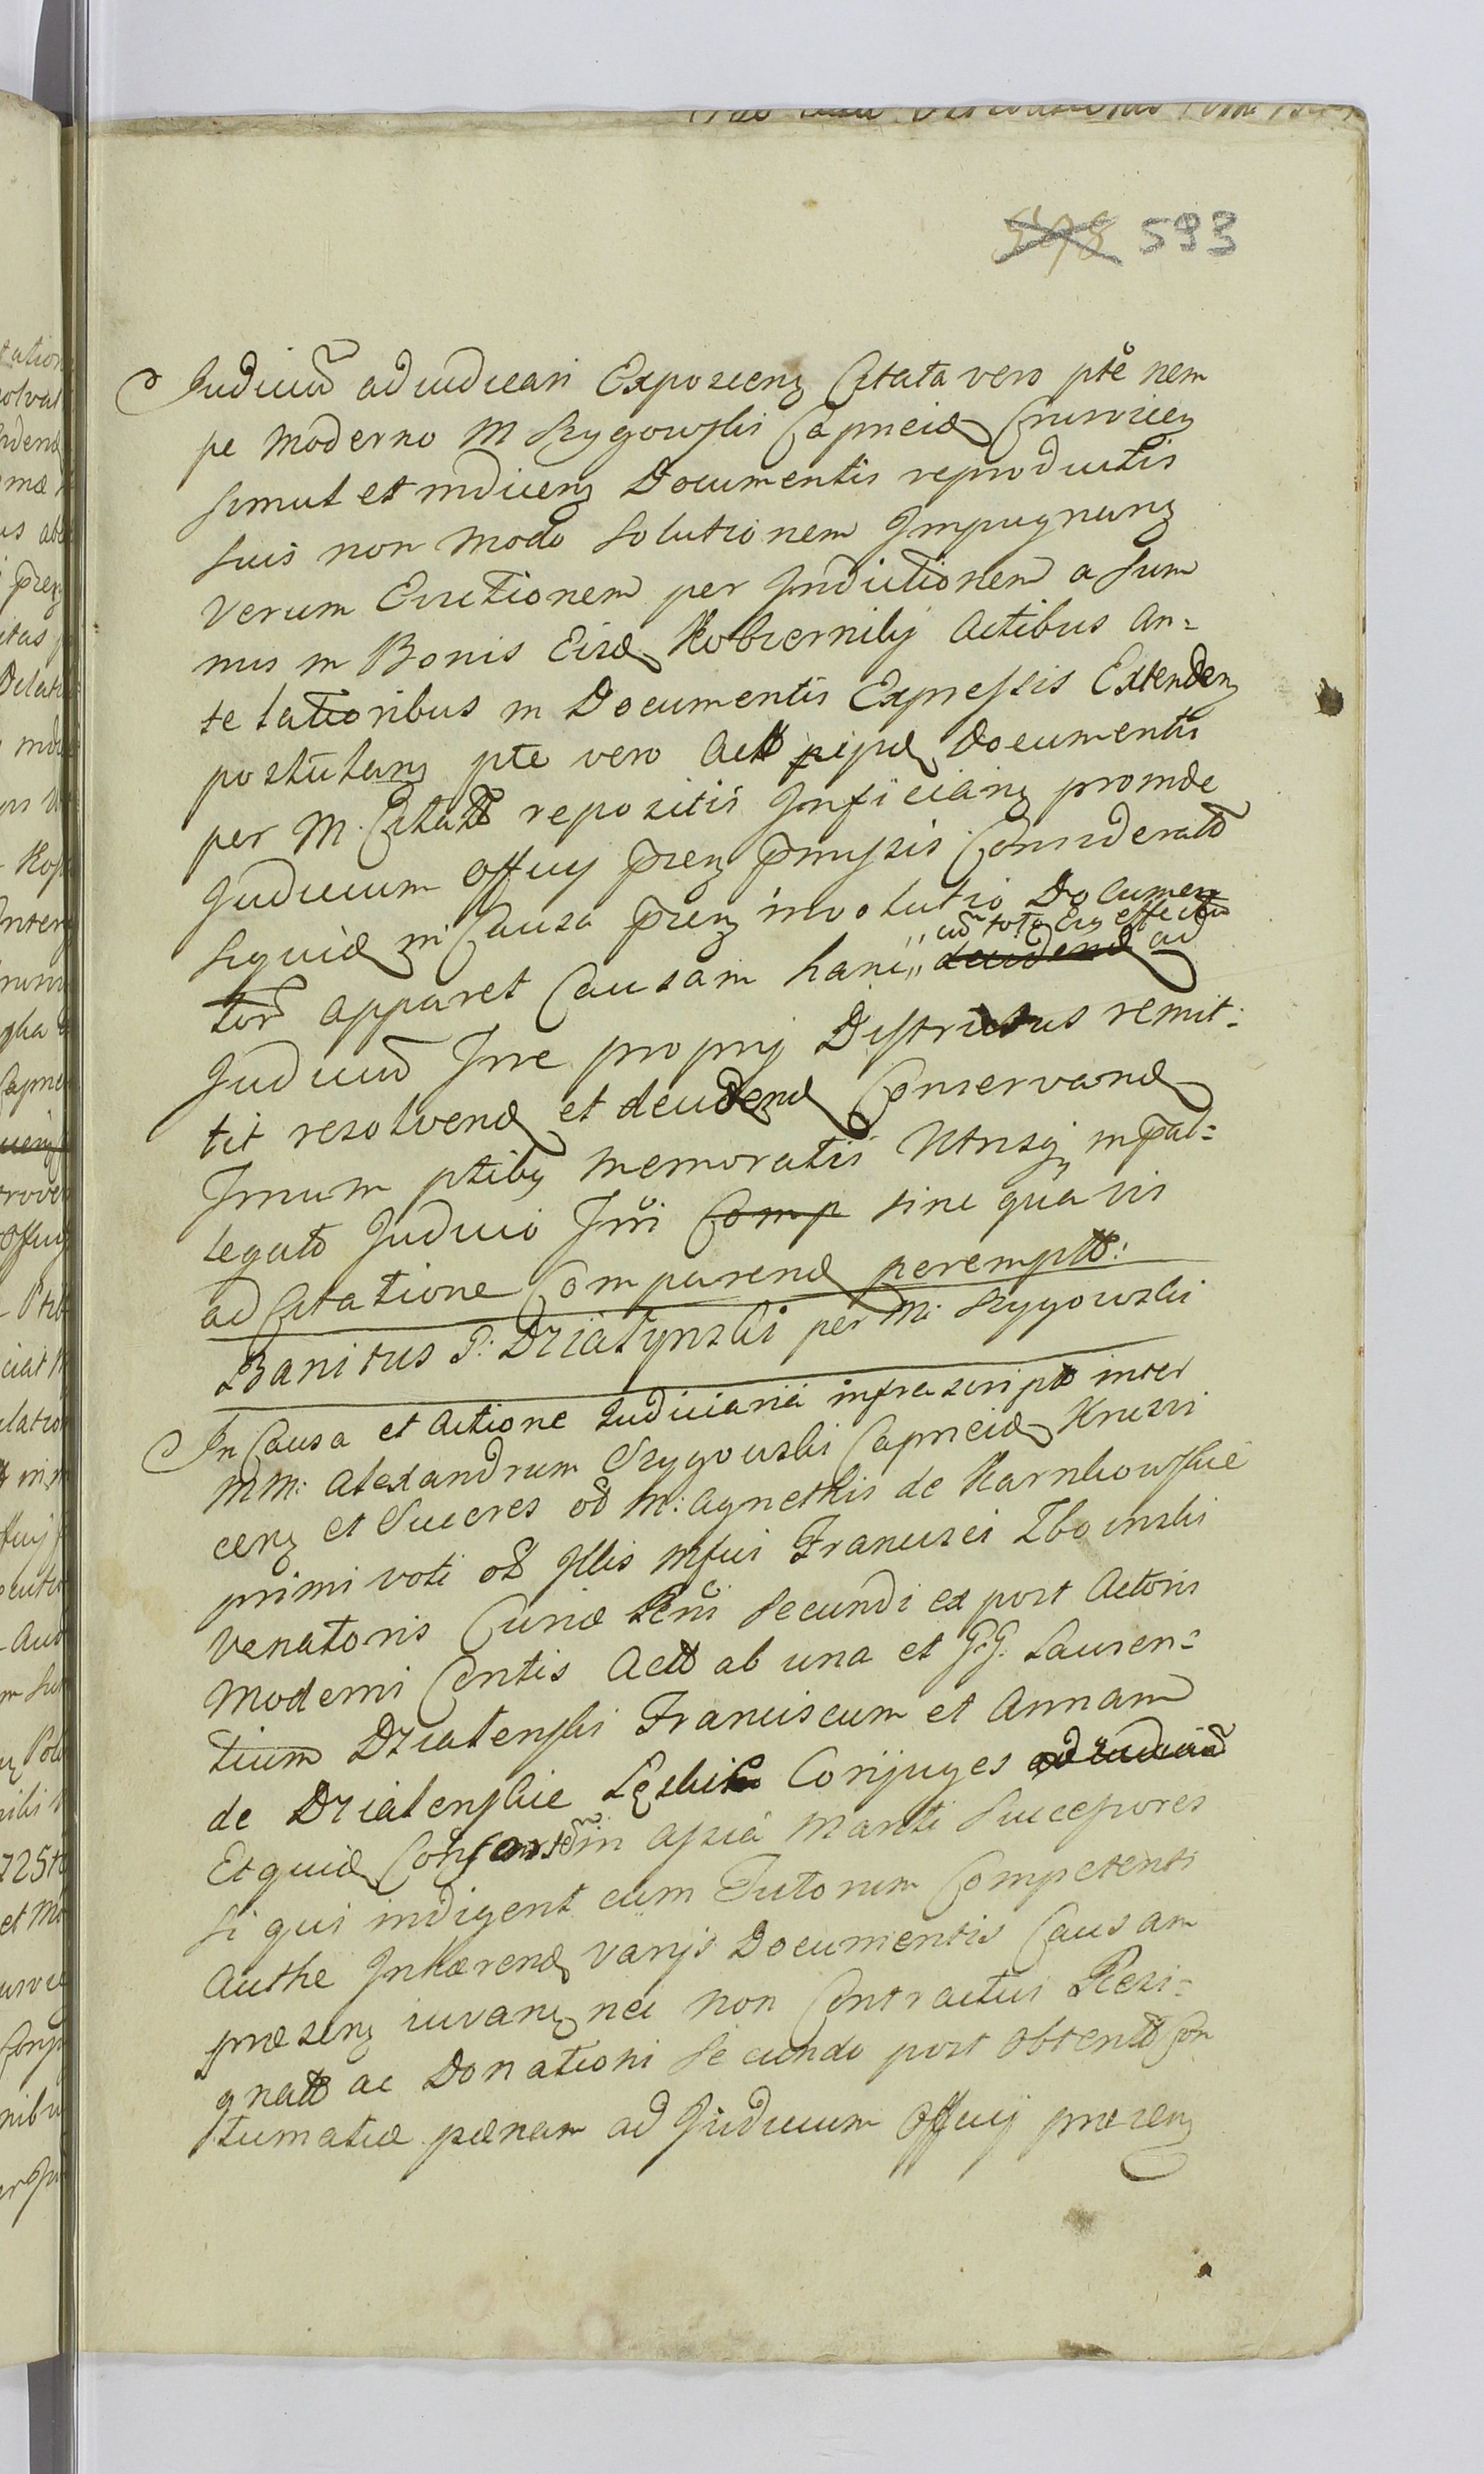 593
Judiciu͠ adiudicari Exposcenꝫ Citata vero pte nem
pe moderno M Rzygowski Capneid Crusvicenꝫ
simul et indicenꝫ Documentis reproductis
suis non modo solutionem Impugnanꝫ
verum Evictionem per Inductionem a sum
mis in Bonis Eisd Kobierniky Actibus An=
te latioribus in Documentis Expressis Extendenꝫ
postulanꝫ pte vero Act ipsa Documentis
per M. Citat repositis Inficianꝫ proinde
Judicium Officij prenꝫ pmissis Considerat
siquid in Causa prenꝫ involutio Documen
tor apparet Causam hanc,, decidend ad
,,cu͠ toto Eius effectu
Judiciu͠ Trre proprij Districtus remit=
tit resolvend et decidend Conservand
Trnum ptibꝫ memoratis Utrisqꝫ in pal=
legato Judicio Trri Comp sine qua vis
ad Citatione Comparend perempt:
Banitus P: Dziatynski per M: Rzygowski
In Causa et Actione Judiciaria infrascript inter
MM: Alexandrum Rzygowski Capneid Krusvi
cenꝫ et Succres oδ M: Agnethis de Karnkowskie
primi voti oδ Illis Mfici Francisci Zboinski
Venatoris Curiæ Regni secundi ex post Actoris
Moderni Contis Act ab una et G.G. Lauren=
tium Dziatenski Franciscum et Annam
de Dziatenskie Leski Conjuges ad iudiciu͠
Et quid Consort͠ in assia Mariti Successores
si qui indigent cum Tutorum Competenti
Authe Inhærend varijs Documentis Causam
præsenꝫ iuvanꝫ nec non Contractus Resi=
gnat ac Donationi secundo post obtent Con
tumatiæ pænam ad Judicium Officij præsenꝫ